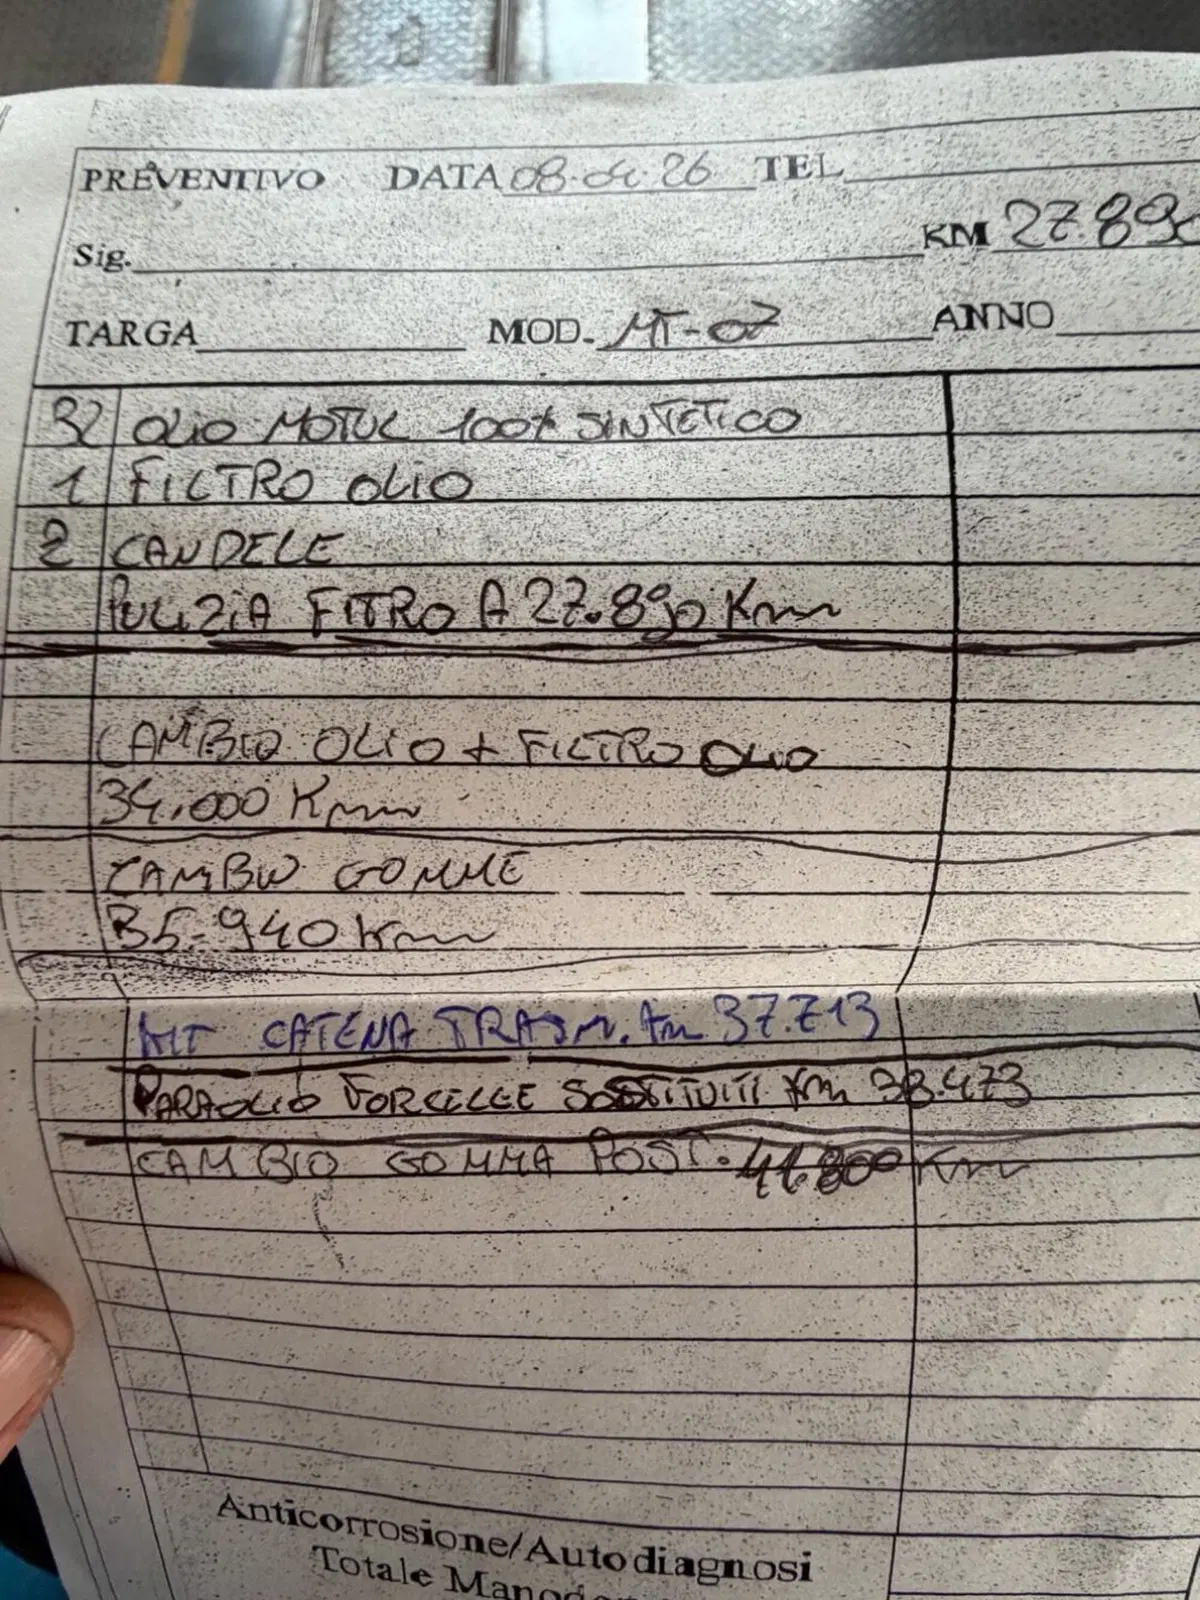 PREVENTIVO DATA 08.04.26 TEL
Sig. KM 27.89
TARGA MOD. MT-07 ANNO
3L OLIO MOTUL 100% SINTETICO
1 FILTRO OLIO
2 CANDELE
PULIZIA FITRO A 27.890 Km
CAMBIO OLIO + FILTRO OLIO
34.000 Km
CAMBIO GOMME
35.940 Km
KIT CATENA TRASM. Km 37.713
PARAOLIO FORCELLE SOSTITUITI Km 38.473
CAMBIO GOMMA POST. 41.800 Km
Anticorrosione/Autodiagnosi
Totale Manod